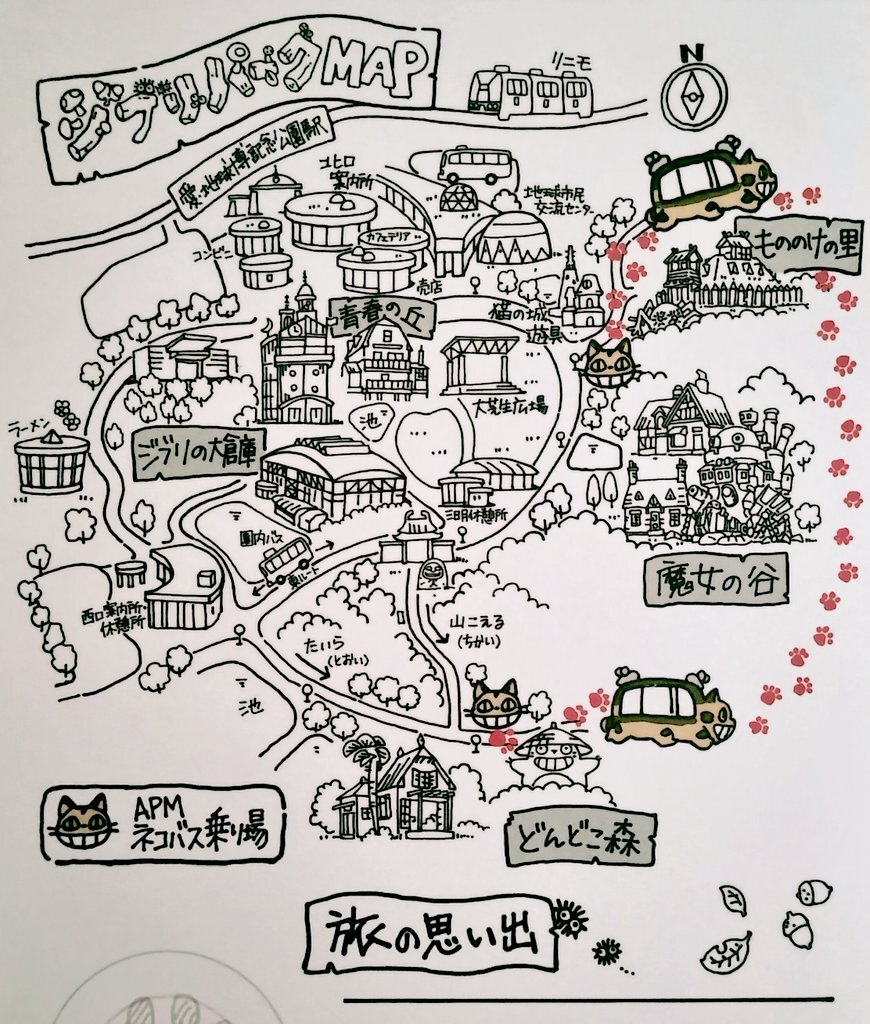 ジブリパークMAP
リニモ
N
愛・地球博記念公園駅
北口
案内所
地球市民
交流センター
もののけの里
コンビニ
カフェテリア
売店
青春の丘
猫の城
遊具
大芝生広場
池
ラーメン
ジブリの大倉庫
三日月休憩所
園内バス
東ルート
魔女の谷
西口案内所・
休憩所
山こえる
(ちかい)
たいら
(とおい)
池
APM
ネコバス乗り場
どんどこ森
旅の思い出